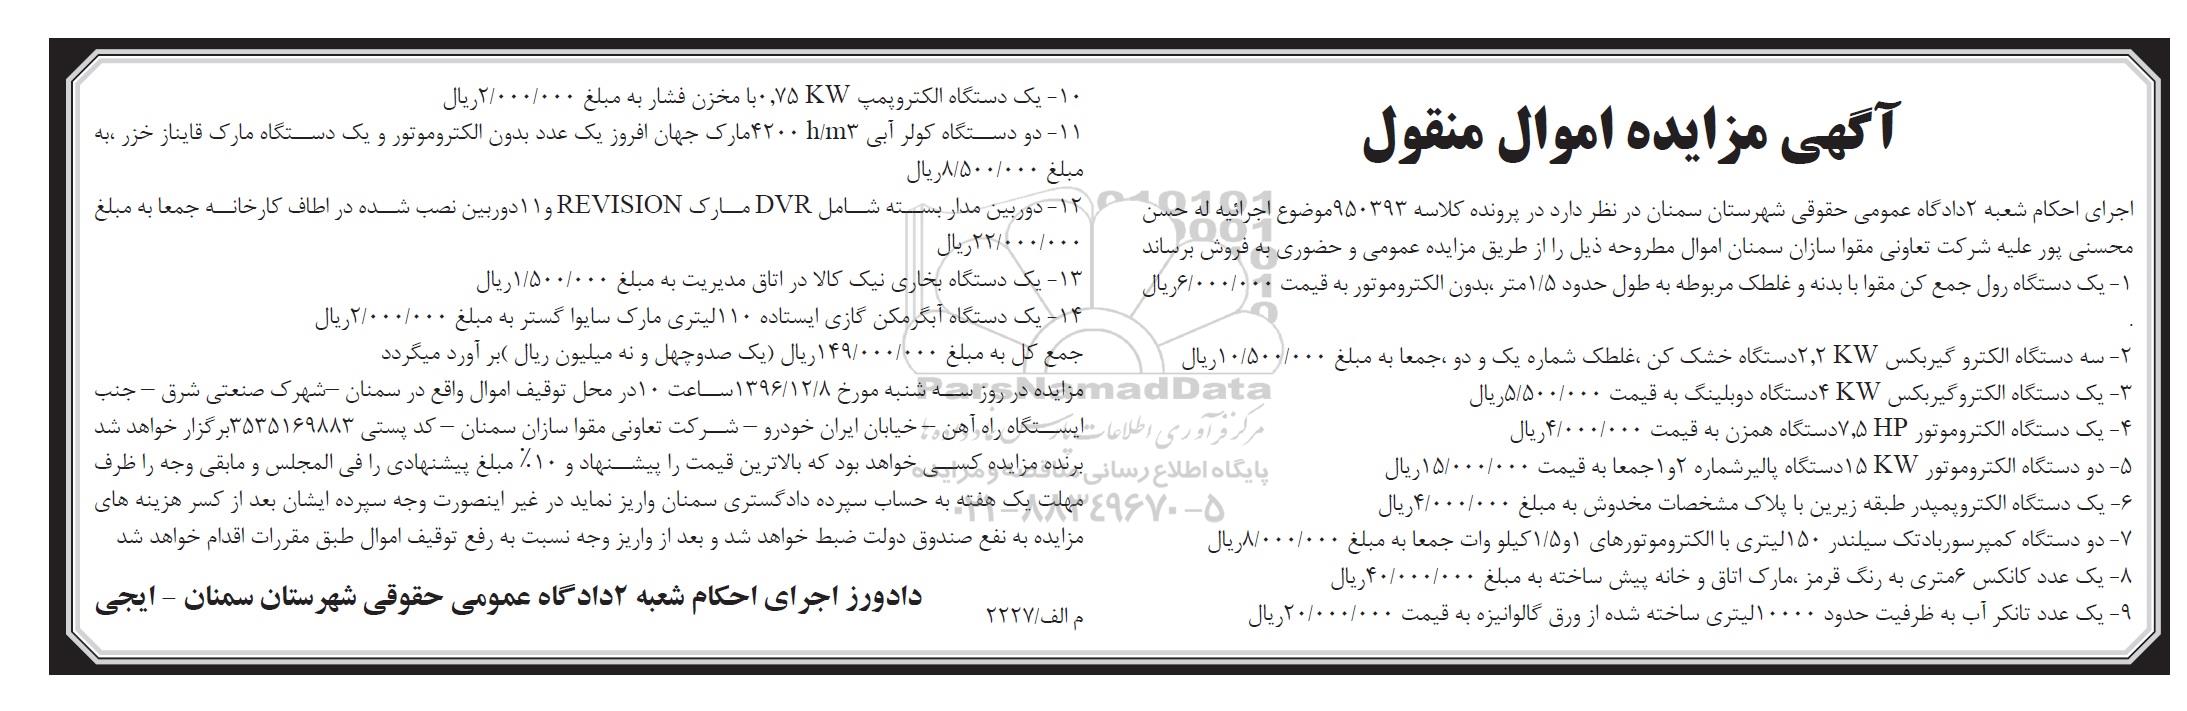 آگهی مزایده اموال منقول
اجرای احکام شعبه ۲دادگاه عمومی حقوقی شهرستان سمنان در نظر دارد در پرونده کلاسه ۹۵۰۳۹۳موضوع اجرائیه له حسن
محسنی پور علیه شرکت تعاونی مقوا سازان سمنان اموال مطروحه ذیل را از طریق مزایده عمومی و حضوری به فروش برساند
۱- یک دستگاه رول جمع کن مقوا با بدنه و غلطک مربوطه به طول حدود ۱/۵متر ،بدون الکتروموتور به قیمت ۶/۰۰۰/۰۰۰ریال
.
۲- سه دستگاه الکترو گیربکس ۲,۲ KWدستگاه خشک کن ،غلطک شماره یک و دو ،جمعا به مبلغ ۱۰/۵۰۰/۰۰۰ریال
۳- یک دستگاه الکتروگیربکس ۴ KWدستگاه دوبلینگ به قیمت ۵/۵۰۰/۰۰۰ریال
۴- یک دستگاه الکتروموتور ۷,۵ HPدستگاه همزن به قیمت ۴/۰۰۰/۰۰۰ریال
۵- دو دستگاه الکتروموتور ۱۵ KWدستگاه پالیرشماره ۲و۱جمعا به قیمت ۱۵/۰۰۰/۰۰۰ریال
۶- یک دستگاه الکتروپمپدر طبقه زیرین با پلاک مشخصات مخدوش به مبلغ ۴/۰۰۰/۰۰۰ریال
۷- دو دستگاه کمپرسوربادتک سیلندر ۱۵۰لیتری با الکتروموتورهای ۱و۱/۵کیلو وات جمعا به مبلغ ۸/۰۰۰/۰۰۰ریال
۸- یک عدد کانکس ۶متری به رنگ قرمز ،مارک اتاق و خانه پیش ساخته به مبلغ ۴۰/۰۰۰/۰۰۰ریال
۹- یک عدد تانکر آب به ظرفیت حدود ۱۰۰۰۰لیتری ساخته شده از ورق گالوانیزه به قیمت ۲۰/۰۰۰/۰۰۰ریال
۱۰- یک دستگاه الکتروپمپ ۰,۷۵ KWبا مخزن فشار به مبلغ ۲/۰۰۰/۰۰۰ریال
۱۱- دو دستگاه کولر آبی ۴۲۰۰ h/m۳مارک جهان افروز یک عدد بدون الکتروموتور و یک دستگاه مارک قایناز خزر ،به
مبلغ ۸/۵۰۰/۰۰۰ریال
۱۲- دوربین مدار بسته شامل DVR مارک REVISION و۱۱دوربین نصب شده در اطاف کارخانه جمعا به مبلغ
۲۲/۰۰۰/۰۰۰ریال
۱۳- یک دستگاه بخاری نیک کالا در اتاق مدیریت به مبلغ ۱/۵۰۰/۰۰۰ریال
۱۴- یک دستگاه آبگرمکن گازی ایستاده ۱۱۰لیتری مارک سایوا گستر به مبلغ ۲/۰۰۰/۰۰۰ریال
جمع کل به مبلغ ۱۴۹/۰۰۰/۰۰۰ریال (یک صدوچهل و نه میلیون ریال )بر آورد میگردد
مزایده در روز سه شنبه مورخ ۱۳۹۶/۱۲/۸ساعت ۱۰در محل توقیف اموال واقع در سمنان –شهرک صنعتی شرق – جنب
ایستگاه راه آهن – خیابان ایران خودرو – شرکت تعاونی مقوا سازان سمنان – کد پستی ۳۵۳۵۱۶۹۸۸۳برگزار خواهد شد
برنده مزایده کسی خواهد بود که بالاترین قیمت را پیشنهاد و ۱۰٪ مبلغ پیشنهادی را فی المجلس و مابقی وجه را ظرف
مهلت یک هفته به حساب سپرده دادگستری سمنان واریز نماید در غیر اینصورت وجه سپرده ایشان بعد از کسر هزینه های
مزایده به نفع صندوق دولت ضبط خواهد شد و بعد از واریز وجه نسبت به رفع توقیف اموال طبق مقررات اقدام خواهد شد
دادورز اجرای احکام شعبه ۲دادگاه عمومی حقوقی شهرستان سمنان – ایجی
م الف/۲۲۲۷
ParsNamadData
مرکز فرآوری اطلاعات پارس نماد داده ها
پایگاه اطلاع رسانی مناقصه و مزایده
۰۲۱-۸۸۳۴۹۶۷۰-۵